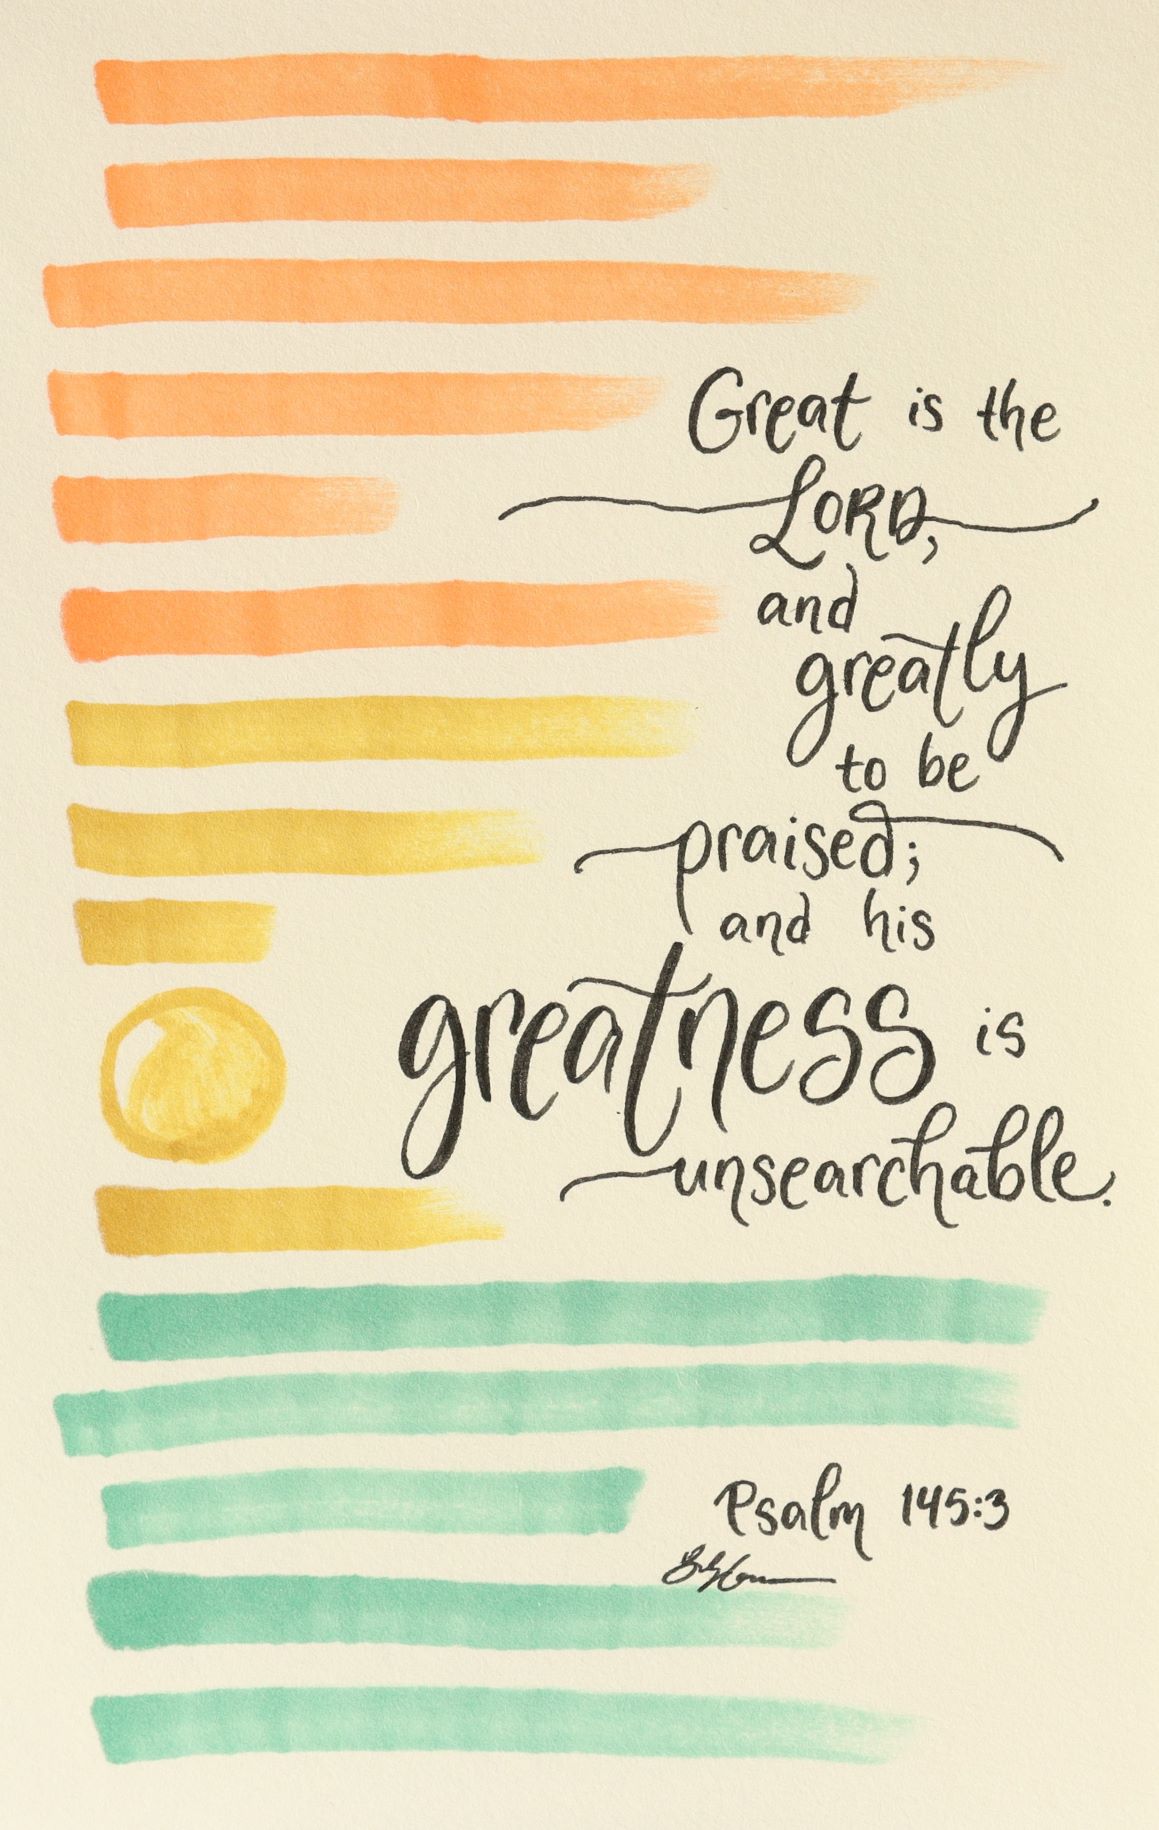 Great is the
LORD,
and
greatly
to be
praised;
and his
greatness is
unsearchable.
Psalm 145:3